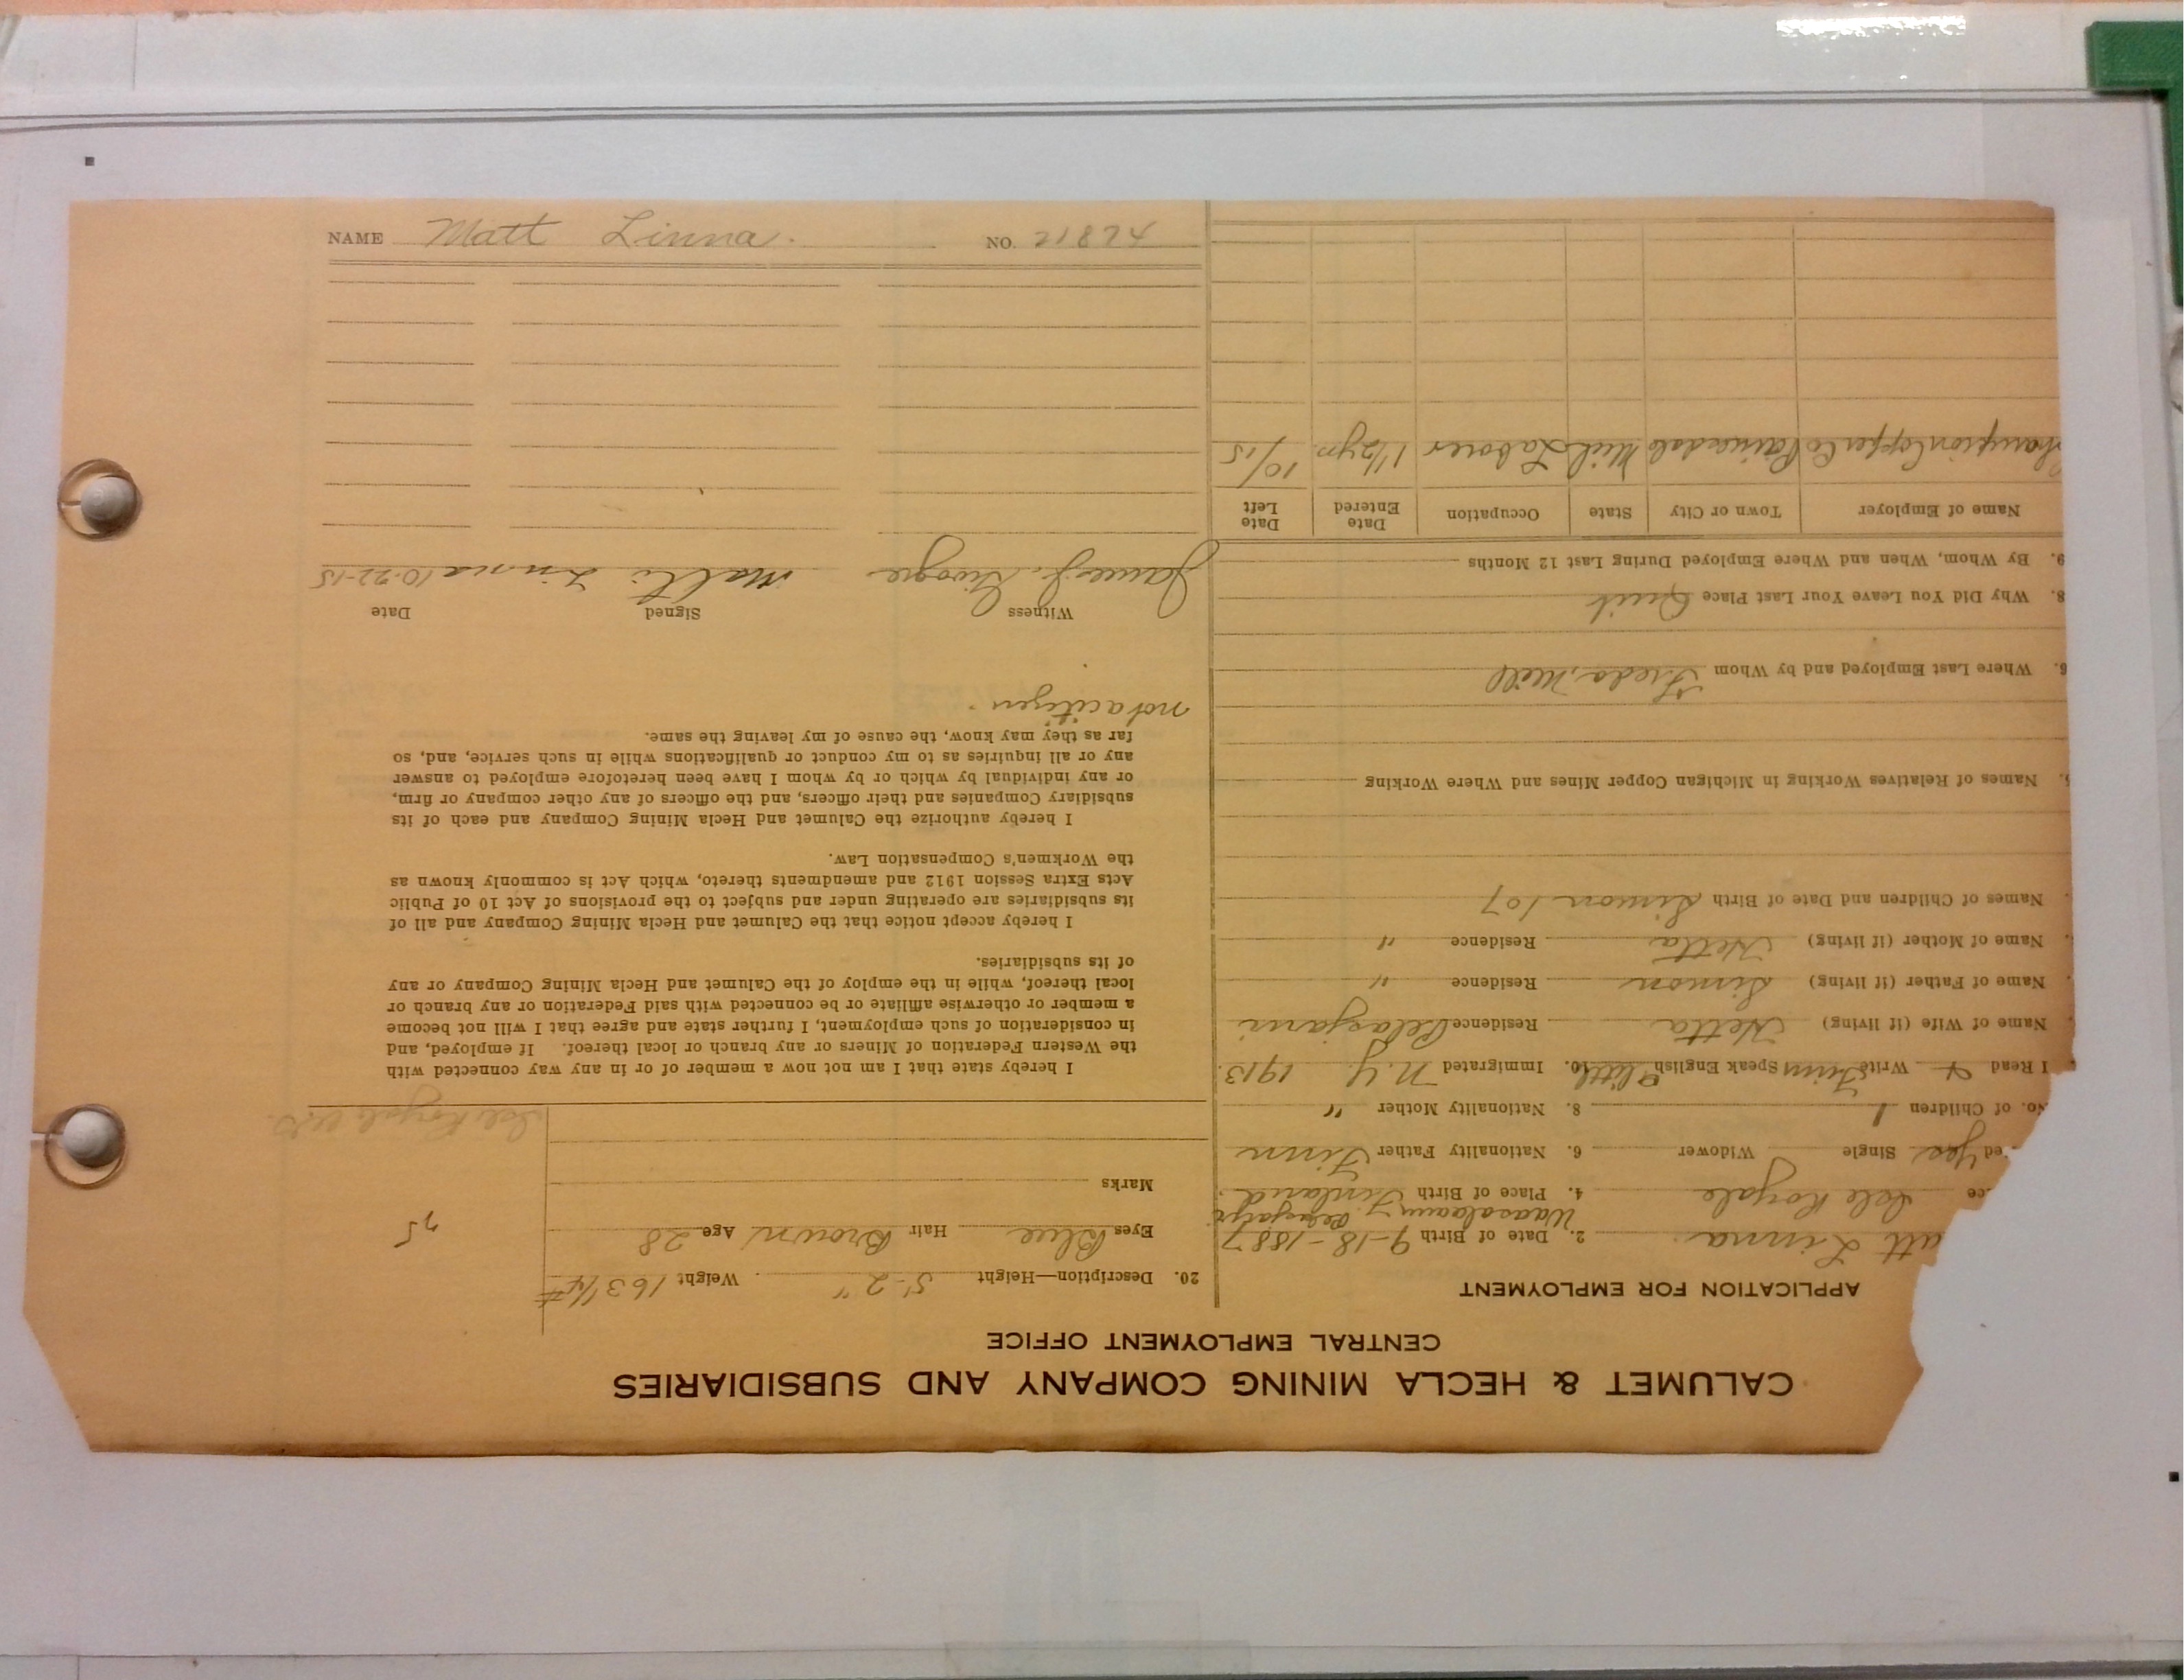 CALUMET & HECLA MINING COMPANY AND SUBSIDIARIES
CENTRAL EMPLOYMENT OFFICE
APPLICATION FOR EMPLOYMENT
att Linna 2. Date of Birth 9-18-1887
ce Isle Royale 4. Place of Birth Finland
ed Yes Single Widower 6. Nationality Father Finn
No. of Children 1 8. Nationality Mother "
I Read Write Finn Speak English little 10. Immigrated N.Y. 1913.
Name of Wife (if living) Hetta Residence
Name of Father (if living) Simon Residence "
Name of Mother (if living) Hetta Residence "
Names of Children and Date of Birth Simon 107
Names of Relatives Working in Michigan Copper Mines and Where Working
6. Where Last Employed and by Whom Freda Mill
8. Why Did You Leave Your Last Place Quit
9. By Whom, When and Where Employed During Last 12 Months
Name of Employer Town or City State Occupation Date Entered Date Left
Champion Copper Co Painesdale Mich Laborer 1 1/2 yrs. 10/15
20. Description—Height 5'-2" Weight 163 1/4 #
Eyes Blue Hair Brown Age 28
75
Marks
Isle Royale
I hereby state that I am not now a member of or in any way connected with
the Western Federation of Miners or any branch or local thereof. If employed, and
in consideration of such employment, I further state and agree that I will not become
a member or otherwise affiliate or be connected with said Federation or any branch or
local thereof, while in the employ of the Calumet and Hecla Mining Company or any
of its subsidiaries.
I hereby accept notice that the Calumet and Hecla Mining Company and all of
its subsidiaries are operating under and subject to the provisions of Act 10 of Public
Acts Extra Session 1912 and amendments thereto, which Act is commonly known as
the Workmen's Compensation Law.
I hereby authorize the Calumet and Hecla Mining Company and each of its
subsidiary Companies and their officers, and the officers of any other company or firm,
or any individual by which or by whom I have been heretofore employed to answer
any or all inquiries as to my conduct or qualifications while in such service, and, so
far as they may know, the cause of my leaving the same.
not a citizen.
Witness Signed Date
James J. Matti Linna 10-22-15
NAME Matt Linna. NO. 21874